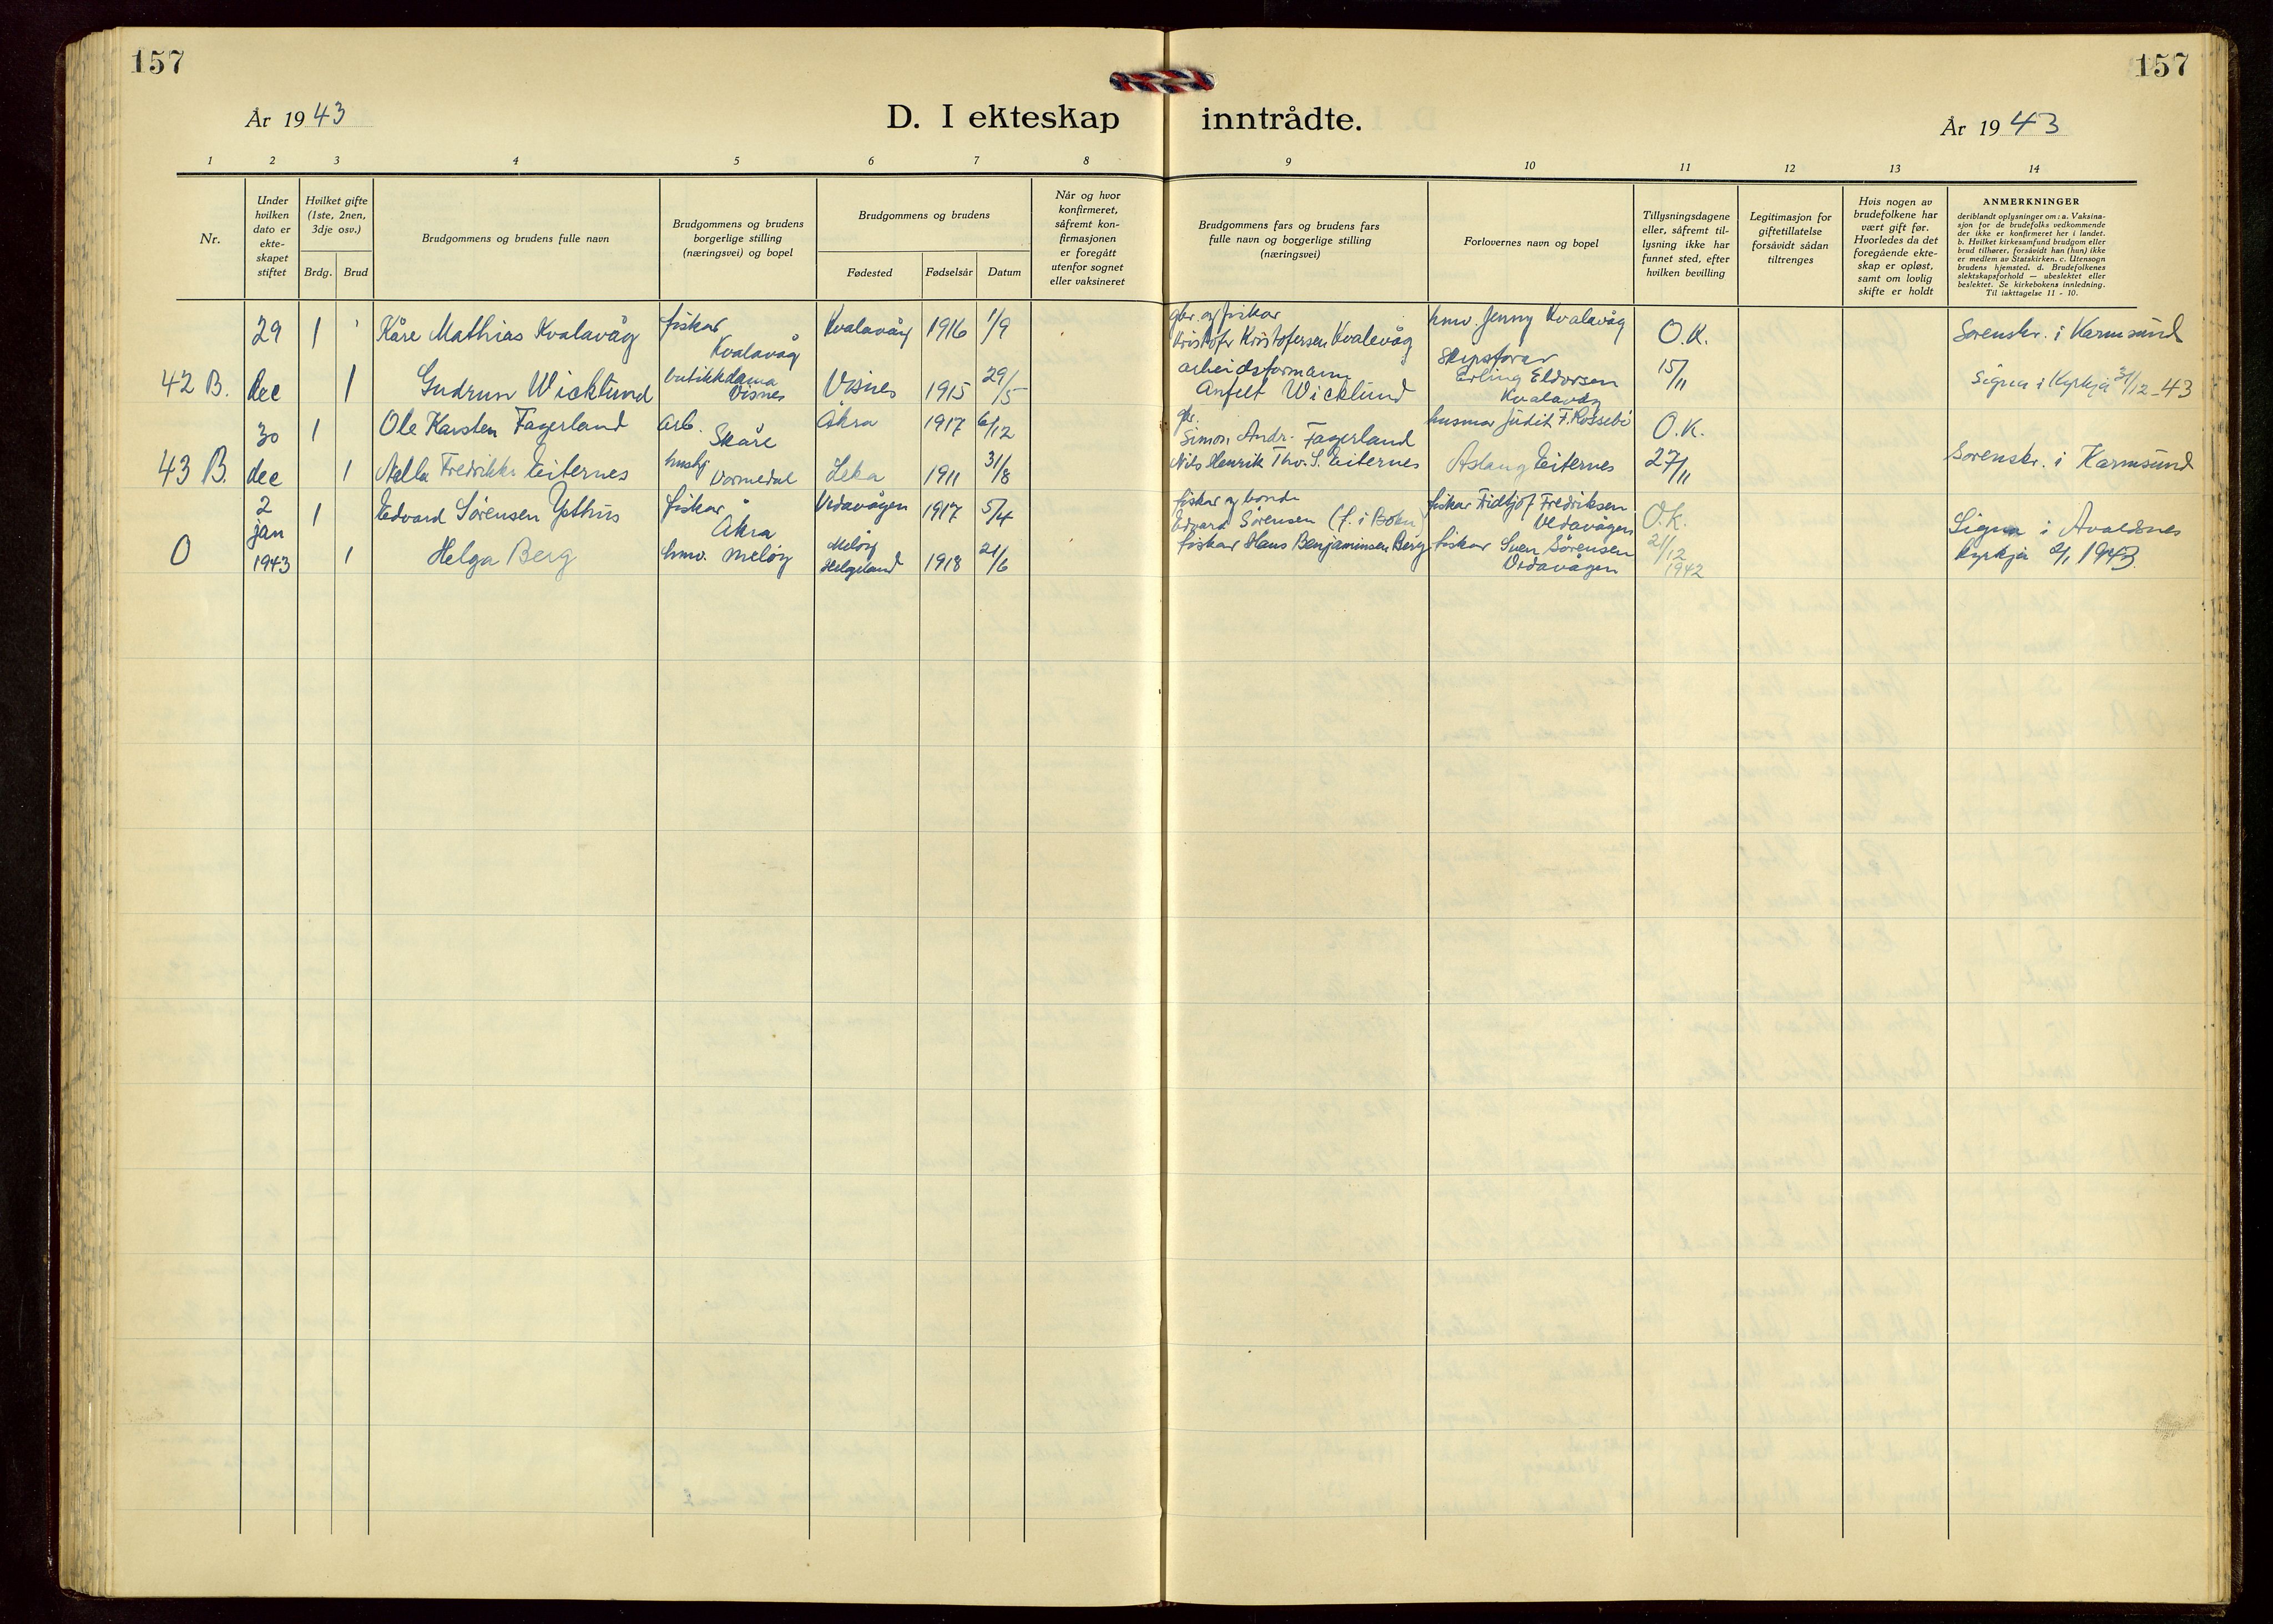 157
157
År 1943
D. I ekteskap inntrådte.
År 1943
1 2 3 4 5 6 7 8 9 10 11 12 13 14
Nr.
Under
hvilken
dato er
ekte-
skapet
stiftet
Hvilket gifte
(1ste, 2nen,
3dje osv.)
Brdg. Brud
Brudgommens og brudens fulle navn
Brudgommens og brudens
borgerlige stilling
(næringsvei) og bopel
Brudgommens og brudens
Fødested Fødselsår Datum
Når og hvor
konfirmeret,
såfremt kon-
firmasjonen
er foregått
utenfor sognet
eller vaksineret
Brudgommens fars og brudens fars
fulle navn og borgerlige stilling
(næringsvei)
Forlovernes navn og bopel
Tillysningsdagene
eller, såfremt til-
lysning ikke har
funnet sted, efter
hvilken bevilling
Legitimasjon for
giftetillatelse
forsåvidt sådan
tiltrenges
Hvis nogen av
brudefolkene har
vært gift før.
Hvorledes da det
foregående ekte-
skap er opløst,
samt om lovlig
skifte er holdt
ANMERKNINGER
deriblandt oplysninger om: a. Vaksina-
sjon for de brudefolks vedkommende
der ikke er konfirmeret her i landet.
b. Hvilket kirkesamfund brudgom eller
brud tilhører, forsåvidt han (hun) ikke
er medlem av Statskirken. c. Utensogn
brudens hjemsted. d. Brudefolkenes
slektskapsforhold — ubeslektet eller
beslektet. Se kirkebokens innledning.
Til iakttagelse 11 - 10.
29 1 Kåre Mathias Kvalavåg fiskar Kvalavåg Kvalavåg 1916 1/9 gbr. og fiskar Kristofer Kristofersen Kvalevåg hmv Jenny Kvalavåg O.K. Sorenskr. i Karmsund
42 B. dec 1 Gudrun Wicklund butikkdama Visnes Visnes 1915 29/5 arbeidsformann Anfelt Wicklund Skipsførar Erling Eldorsen Kvalavåg 15/11 Signa i Kyrkja 31/12-43
30 1 Ole Karsten Fagerland arb. Skåre Åkra 1917 6/12 gbr. Simon Andr. Fagerland husmor Judit F. Rossebø O.K.
43 B. dec 1 Nella Fredrikke Eiternes hushj Vormedal Leka 1911 31/8 Nils Henrik Thv. S. Eiternes Aslaug Eiternes 27/11 Sorenskr. i Karmsund
2 jan 1 Edvard Sørensen Ypthus fiskar Åkra Vedavågen 1917 5/4 fiskar og bonde Edvard Sørensen (f. i Bokn) fiskar Fidtjof Fredriksen Vedavågen O.K. Signa i Avaldsnes
0 1943 1 Helga Berg hmv. Meløy Meløy Helgeland 1918 21/6 fiskar Hans Benjaminsen Berg fiskar Sven Sørensen Vedavågen 21/12 1942 kyrkja 2/1 1943.